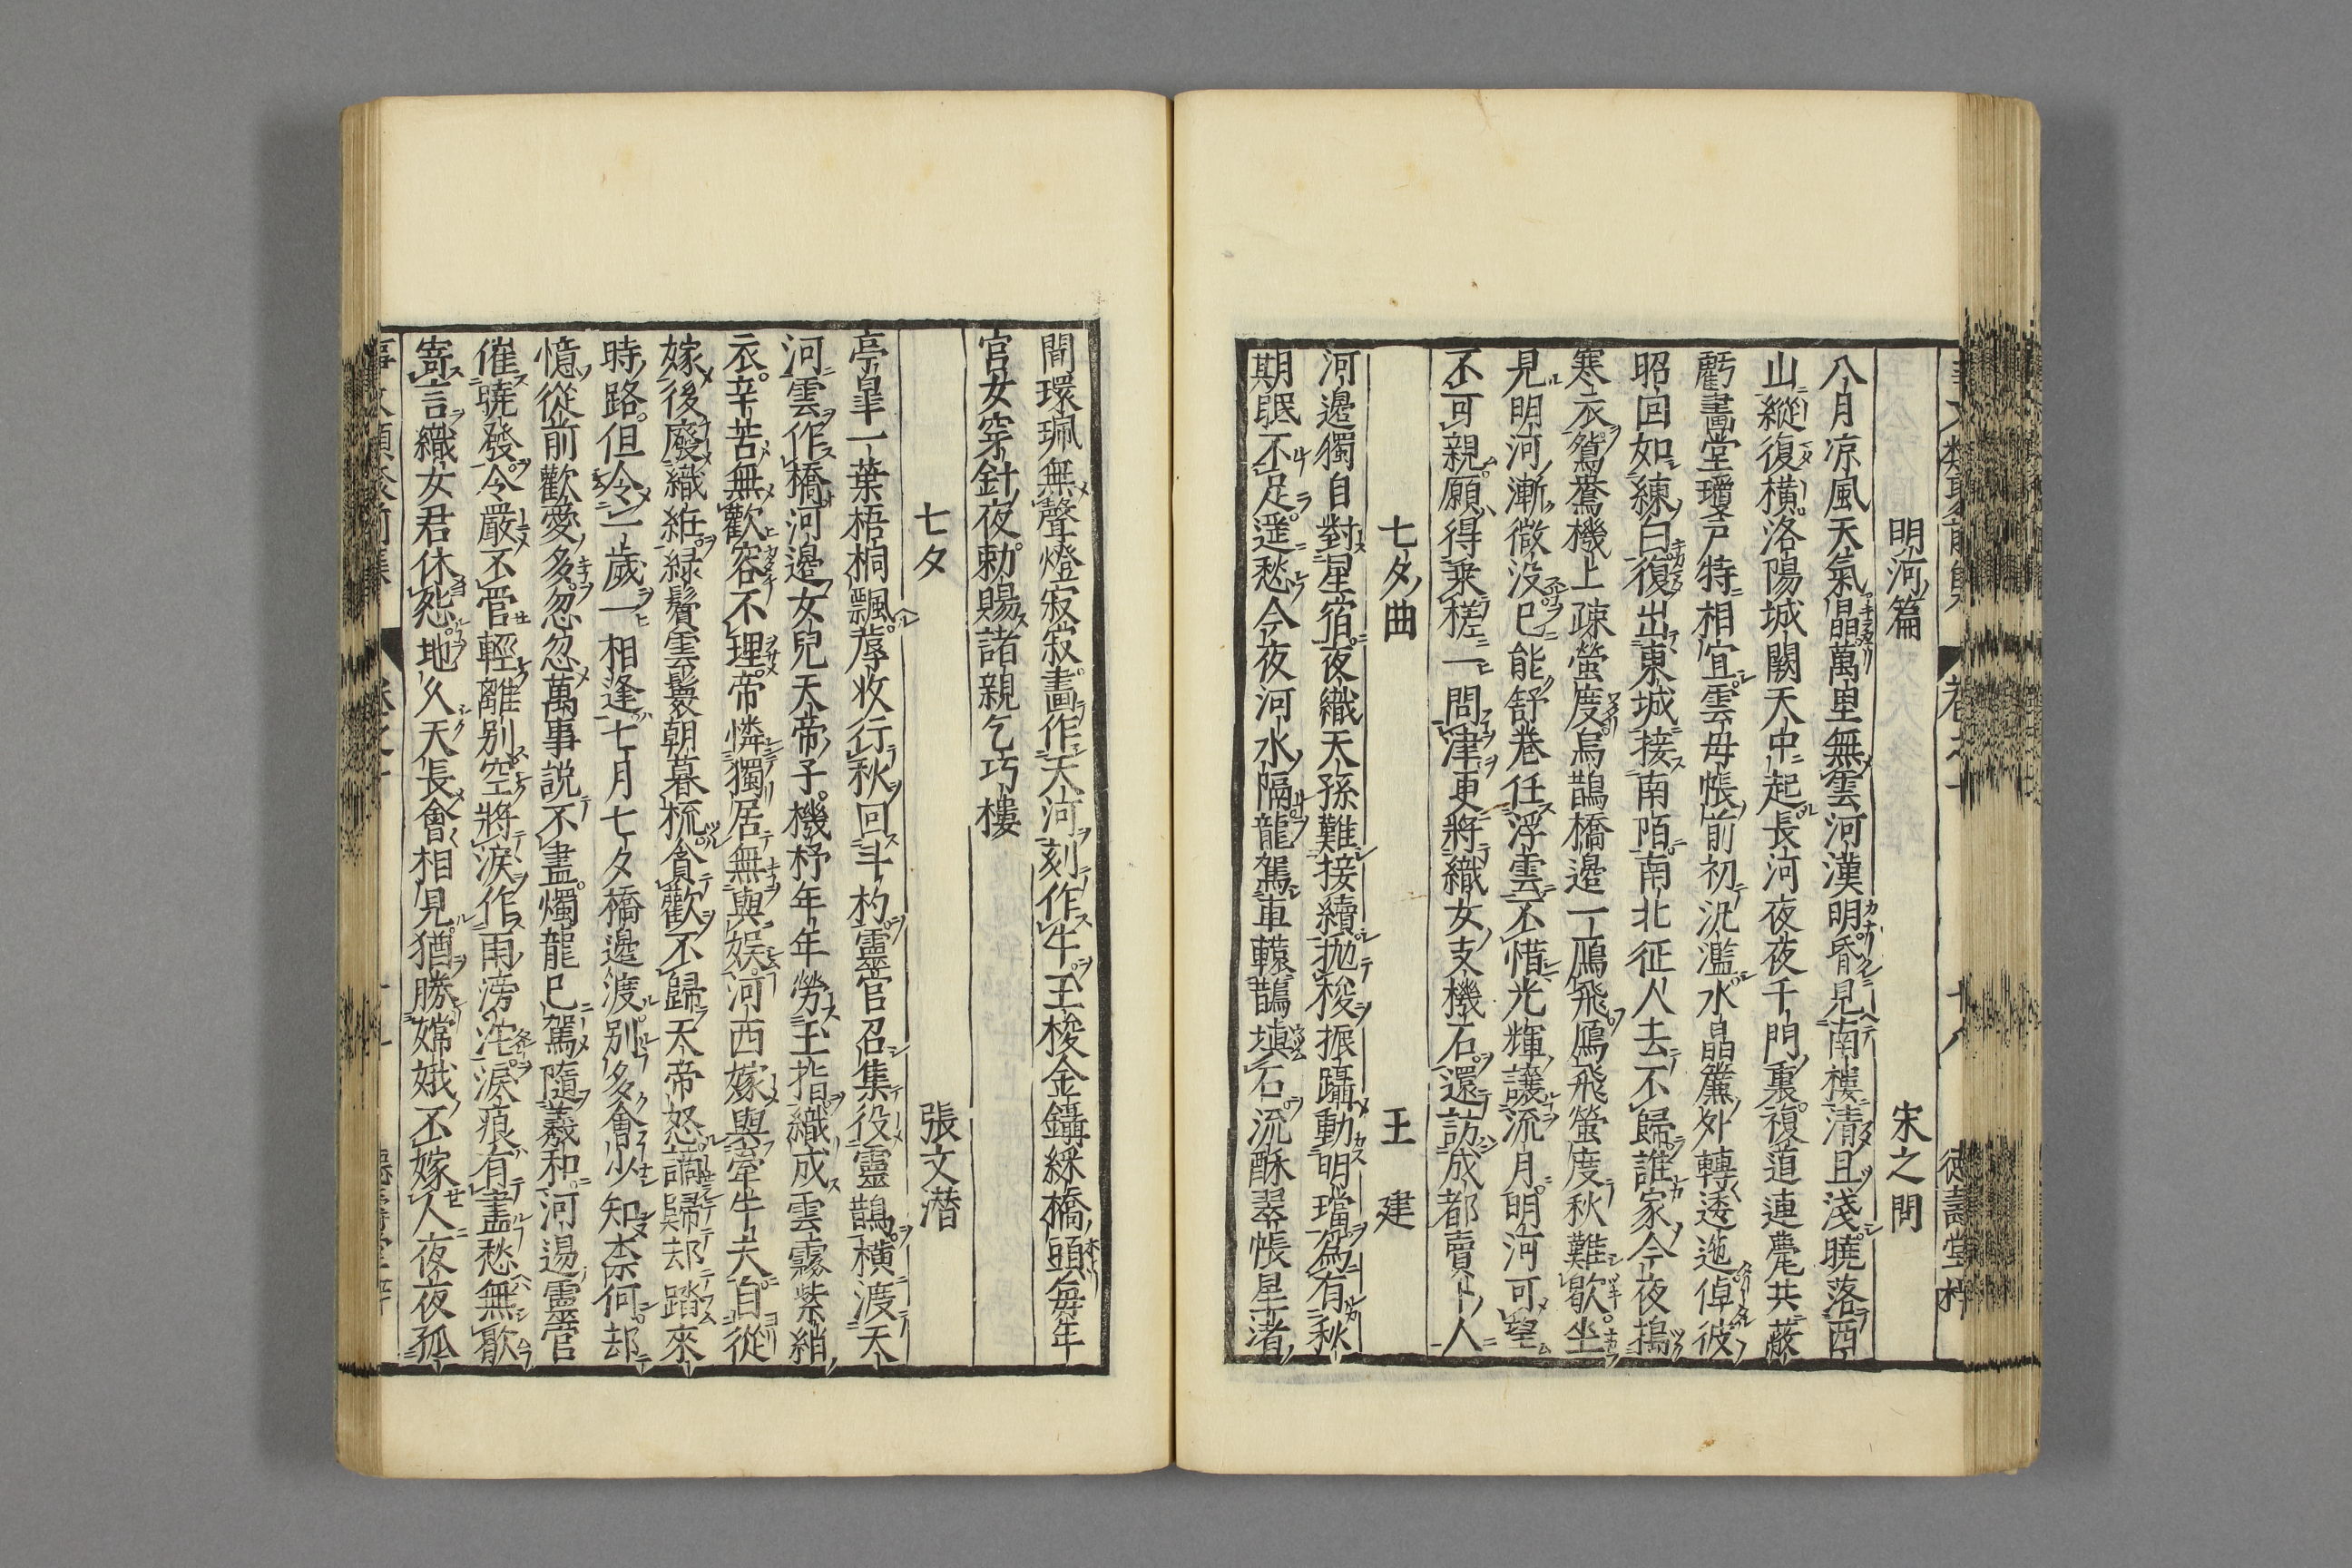 明河篇 宋之問
八月凉風天氣晶萬里無雲河漢明昏見南樓清且淺曉落西
山縱復橫洛陽城闕天中起長河夜夜千門裏複道連甍共蔽
虧畫堂瓊戸特相宜雲母帳前初汎濫水晶簾外轉逶迤倬彼
昭回如練白復出東城接南陌南北征人去不歸誰家今夜擣
寒衣鴛鴦機上踈螢度烏鵲橋邊一鴈飛鴈飛螢度秋難歇坐
見明河漸微没已能舒卷任浮雲不惜光輝讓流月明河可望
不可親願得乘槎一問津更將織女支機石還訪成都賣卜人
七夕曲 王建
河邊獨自對星宿夜織天孫難接續抛梭振躡動明璫爲有秋
期眠不足遥愁今夜河水隔龍駕車轅鵲填石流酥翠帳星渚
間環珮無聲燈寂寂畫作天河刻作牛玉梭金鑷綵橋頭每年
宫女穿針夜勅賜諸親乞巧樓
七夕 張文潛
亭皐一葉梧桐飄蓐收行秋回斗杓靈官召集役靈鵲橫渡天
河雲作橋河邊女兒天帝子機杼年年勞玉指織成雲霧紫綃
衣辛苦無歡容不理帝憐獨居無與娱河西嫁與牽牛夫自從
嫁後廢織紝緑鬢雲鬟朝暮梳貪歡不歸天帝怒謫歸却踏來
時路但令一歲一相逢七月七夕橋邊渡別多會少知柰何却
憶從前歡愛多忽忽萬事説不盡燭龍已駕隨羲和河邊靈官
催曉發令嚴不管輕離別空將淚作雨滂沱淚痕有盡愁無歇
寄言織女君休怨地久天長會相見猶勝嫦娥不嫁人夜夜孤